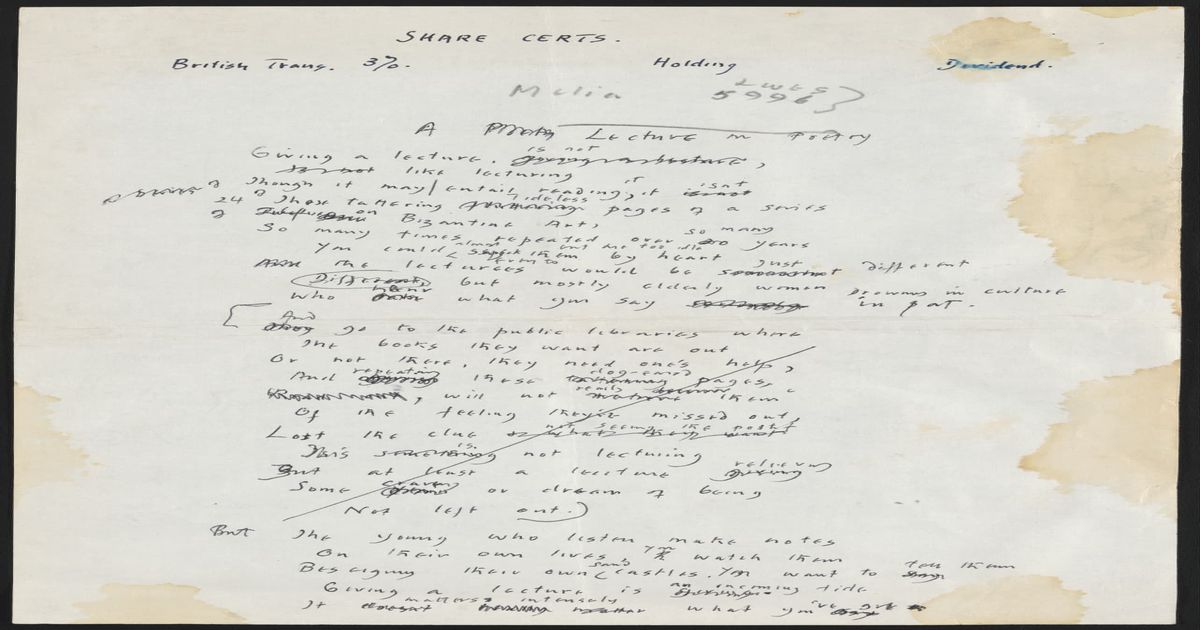 SHARE CERTS.
British Trans. 3%. Holding Dividend.
Melia 5996 }
A Lecture in Poetry
is not
Giving a lecture,
is not like lecturing
Though it may entail reading, it isn't
24 Those tattering tideless pages of a series
of on Bizantine Art,
So many times repeated over so many years
almost but are too idle
You could them by heart just
And the lectures would be different
Different but mostly elderly women drowns in culture
Who hear what you say in pat.
And
go to the public libraries where
The books they want are out
Or not there, they need one's help,
repeating dog-eared
And these tattering pages,
, will not really them
Of the feeling they've missed out,
not seeing the point
Lost the clue or what they want
is
This something not lecturing
relieving
But at least a lecture giving
craving
Some or dream of being
Not left out.)
But The young who listen make notes
On their own lives, You watch them
sand tell them
Besieging their own castles. You want to
an oncoming tide
Giving a lecture is
matters intensely
It doesn't matter what you've got